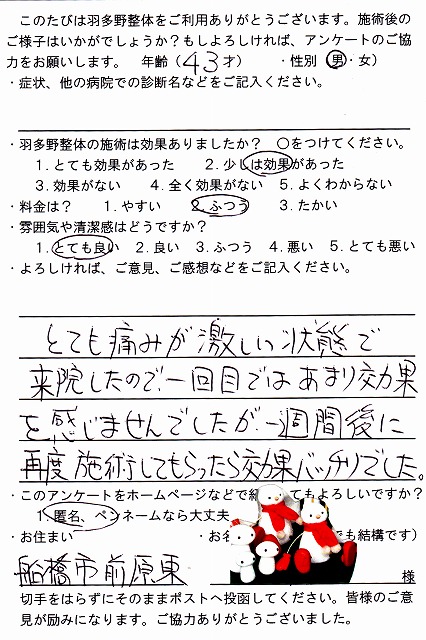 このたびは羽多野整体をご利用ありがとうございます。施術後の
ご様子はいかがでしょうか?もしよろしければ、アンケートのご協
力をお願いします。 年齢(43才) ・性別(男・女)
・症状、他の病院での診断名などをご記入ください。
・羽多野整体の施術は効果ありましたか? ○をつけてください。
1.とても効果があった 2.少しは効果があった
3.効果がない 4.全く効果がない 5.よくわからない
・料金は? 1.やすい 2.ふつう 3.たかい
・雰囲気や清潔感はどうですか?
1.とても良い 2.良い 3.ふつう 4.悪い 5.とても悪い
・よろしければ、ご意見、ご感想などをご記入ください。
とても痛みが激しい状態で
来院したので、一回目ではあまり効果
を感じませんでしたが、一週間後に
再度施術してもらったら効果バッチリでした。
・このアンケートをホームページなどで紹 てもよろしいですか?
1.匿名、ペンネームなら大丈夫
・お住まい ・お名 でも結構です)
船橋市前原東 様
切手をはらずにそのままポストへ投函してください。皆様のご意
見が励みになります。ご協力ありがとうございました。